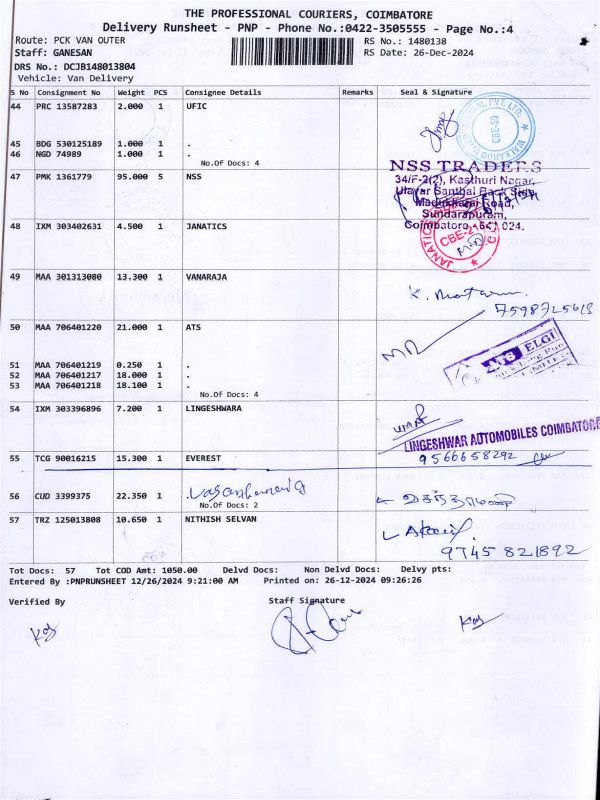 THE PROFESSIONAL COURIERS, COIMBATORE
Delivery Runsheet - PNP - Phone No.:0422-3505555 - Page No.:4
Route: PCK VAN OUTER RS No.: 1480138
Staff: GANESAN RS Date: 26-Dec-2024
DRS No.: DCJB148013804
Vehicle: Van Delivery
S No Consignment No Weight PCS Consignee Details Remarks Seal & Signature
44 PRC 13587283 2.000 1 UFIC
CBE-50
45 BDG 530125189 1.000 1 .
46 NGD 74989 1.000 1 .
No.Of Docs: 4
47 PMK 1361779 95.000 5 NSS
NSS TRADERS
34/F-2(2), Kasthuri Nagar,
Ulavar Santhai Back Side,
Madukkarai Road,
Sundarapuram,
Coimbatore - 641 024.
48 IXM 303402631 4.500 1 JANATICS
JANATICS
CBE-21
49 MAA 301313080 13.300 1 VANARAJA
7598725618
50 MAA 706401220 21.000 1 ATS
ELGI
51 MAA 706401219 0.250 1 .
52 MAA 706401217 18.000 1 .
53 MAA 706401218 18.100 1 .
No.Of Docs: 4
54 IXM 303396896 7.200 1 LINGESHWARA
LINGESHWAR AUTOMOBILES COIMBATORE
55 TCG 90016215 15.300 1 EVEREST 9566658292
56 CUD 3399375 22.350 1 .
No.Of Docs: 2
57 TRZ 125013808 10.650 1 NITHISH SELVAN
9745 821892
Tot Docs: 57 Tot COD Amt: 1050.00 Delvd Docs: Non Delvd Docs: Delvy pts:
Entered By :PNPRUNSHEET 12/26/2024 9:21:00 AM Printed on: 26-12-2024 09:26:26
Verified By Staff Signature